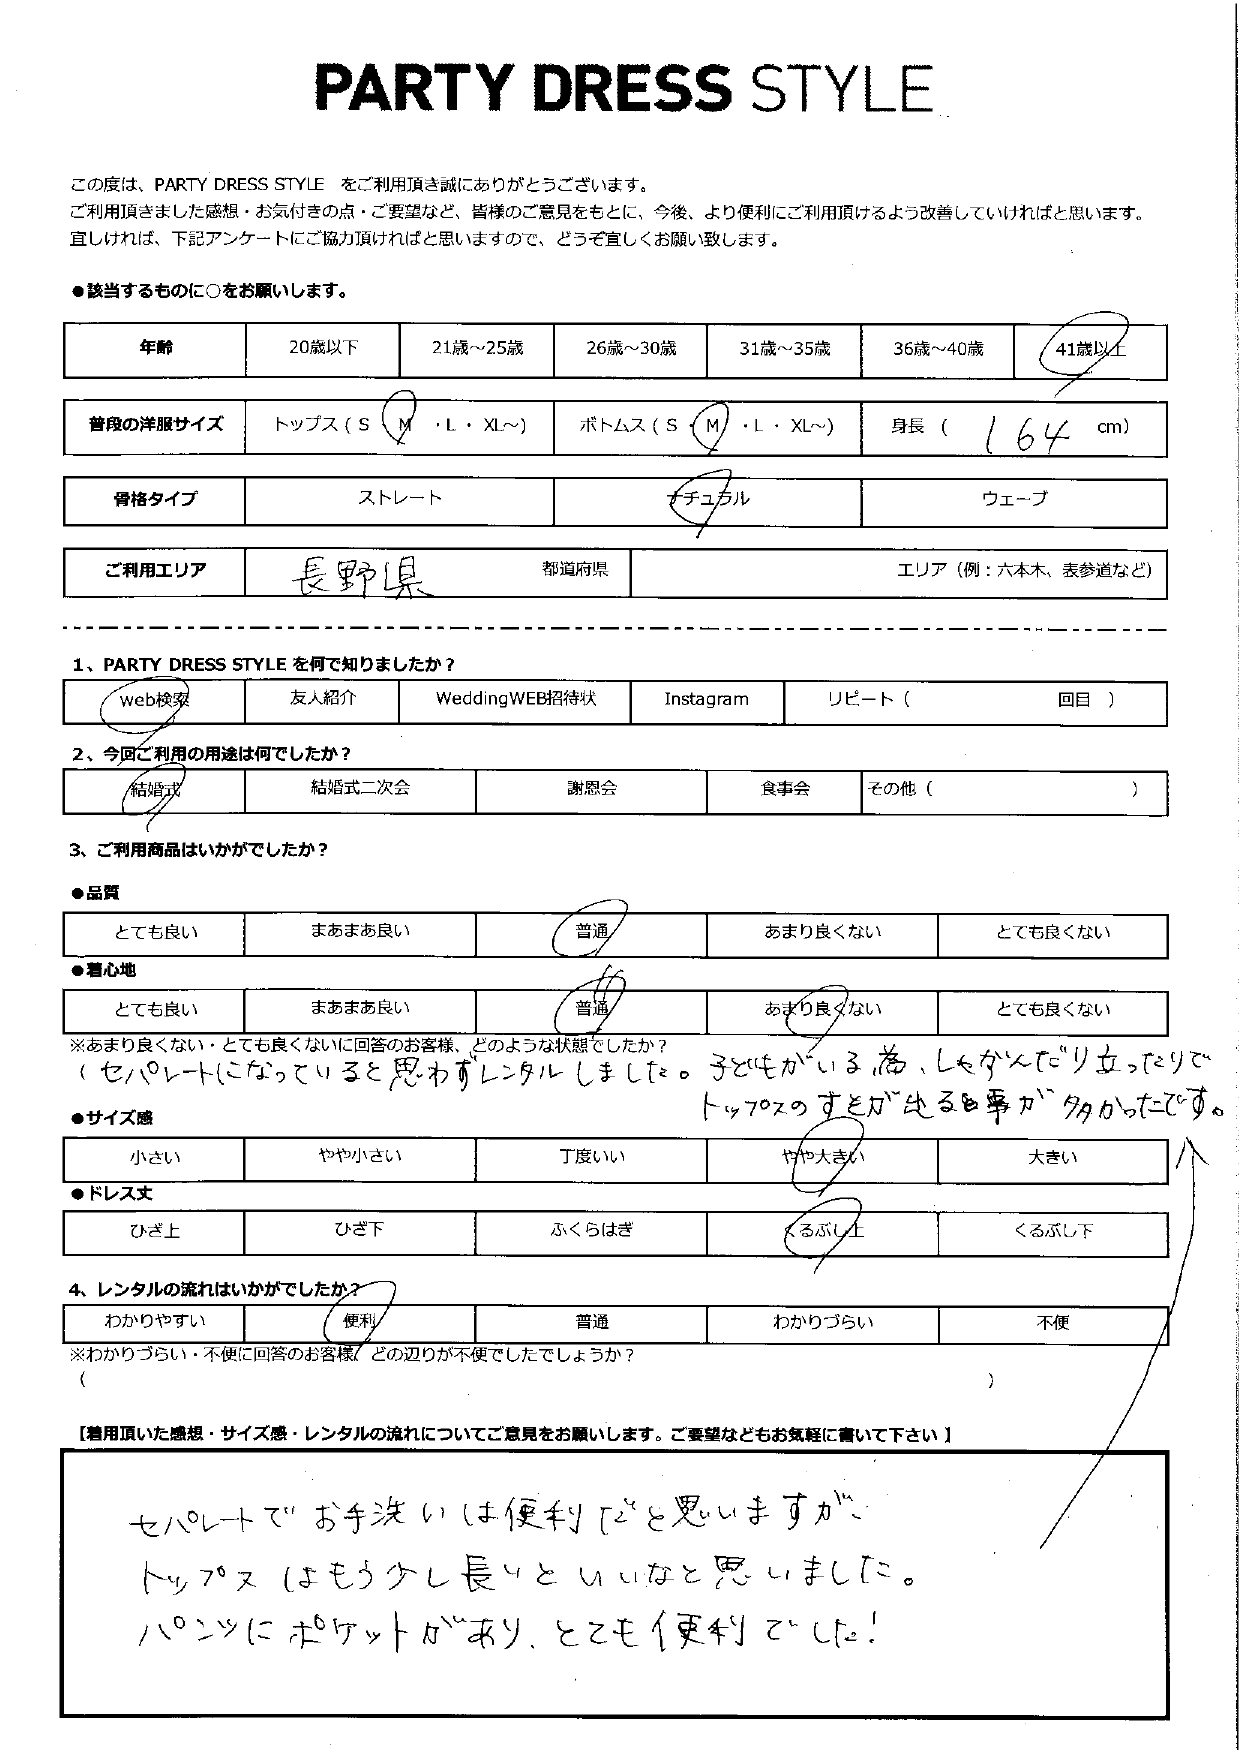 PARTY DRESS STYLE
この度は、PARTY DRESS STYLE をご利用頂き誠にありがとうございます。
ご利用頂きました感想・お気付きの点・ご要望など、皆様のご意見をもとに、今後、より便利にご利用頂けるよう改善していければと思います。
宜しければ、下記アンケートにご協力頂ければと思いますので、どうぞ宜しくお願い致します。
●該当するものに○をお願いします。
年齢 20歳以下 21歳～25歳 26歳～30歳 31歳～35歳 36歳～40歳 41歳以上
普段の洋服サイズ トップス ( S ・ M ・L ・ XL～) ボトムス ( S ・ M ・L ・ XL～) 身長 ( 164 cm)
骨格タイプ ストレート ナチュラル ウェーブ
ご利用エリア 長野県 都道府県 エリア（例：六本木、表参道など）
1、PARTY DRESS STYLE を何で知りましたか？
web検索 友人紹介 WeddingWEB招待状 Instagram リピート（ 回目 ）
2、今回ご利用の用途は何でしたか？
結婚式 結婚式二次会 謝恩会 食事会 その他（ ）
3、ご利用商品はいかがでしたか？
●品質
とても良い まあまあ良い 普通 あまり良くない とても良くない
●着心地
とても良い まあまあ良い 普通 あまり良くない とても良くない
※あまり良くない・とても良くないに回答のお客様、どのような状態でしたか？
（セパレートになっていると思わずレンタルしました。子どもがいる為、しゃがんだり立ったりで
トップスのすそが出る事が多かったです。
●サイズ感
小さい やや小さい 丁度いい やや大きい 大きい
●ドレス丈
ひざ上 ひざ下 ふくらはぎ くるぶし上 くるぶし下
4、レンタルの流れはいかがでしたか？
わかりやすい 便利 普通 わかりづらい 不便
※わかりづらい・不便に回答のお客様、どの辺りが不便でしたでしょうか？
（ ）
【着用頂いた感想・サイズ感・レンタルの流れについてご意見をお願いします。ご要望などもお気軽に書いて下さい】
セパレートでお手洗いは便利だと思いますが、
トップスはもう少し長いといいなと思いました。
パンツにポケットがあり、とても便利でした！